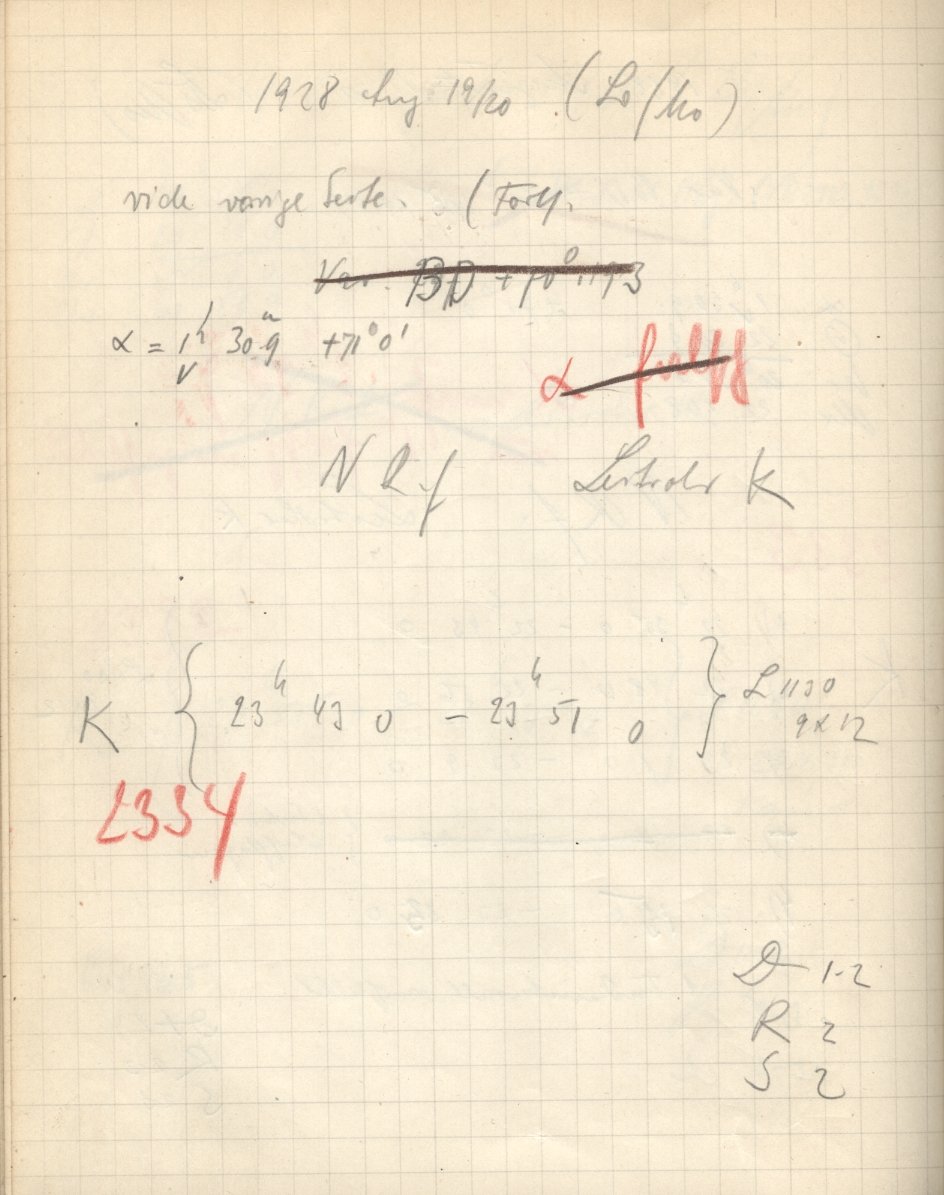 1928 Aug 19/20 (Lo/Ko)
vide vorige Seite. (Forts.
Var. BD +70° 1193
α = 1h 30m 9 +71° 0'
α falsch
N R f Leitrohr K
K { 23h 43 0 – 23h 51 0 } L 1130
9x12
2334
D 1-2
R 2
S 2